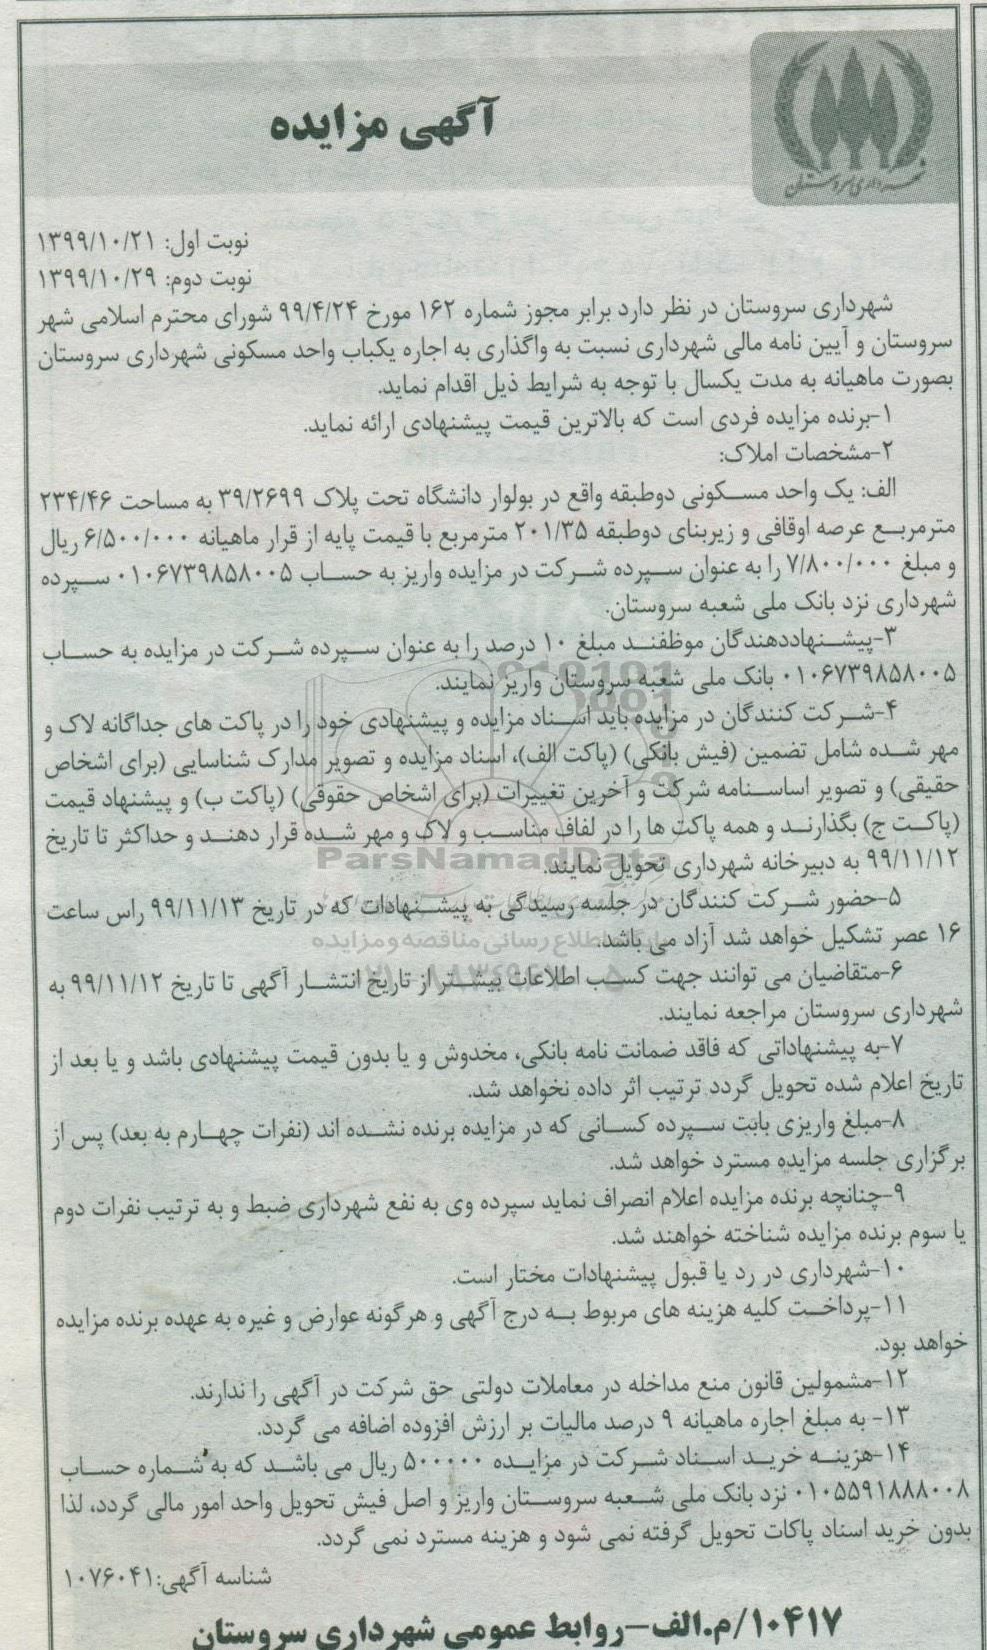 شهرداری سروستان
آگهی مزایده
نوبت اول: ۱۳۹۹/۱۰/۲۱
نوبت دوم: ۱۳۹۹/۱۰/۲۹
شهرداری سروستان در نظر دارد برابر مجوز شماره ۱۶۲ مورخ ۹۹/۴/۲۴ شورای محترم اسلامی شهر
سروستان و آیین نامه مالی شهرداری نسبت به واگذاری به اجاره یکباب واحد مسکونی شهرداری سروستان
بصورت ماهیانه به مدت یکسال با توجه به شرایط ذیل اقدام نماید.
۱-برنده مزایده فردی است که بالاترین قیمت پیشنهادی ارائه نماید.
۲-مشخصات املاک:
الف: یک واحد مسکونی دوطبقه واقع در بولوار دانشگاه تحت پلاک ۳۹/۲۶۹۹ به مساحت ۲۳۴/۴۶
مترمربع عرصه اوقافی و زیربنای دوطبقه ۲۰۱/۳۵ مترمربع با قیمت پایه از قرار ماهیانه ۶/۵۰۰/۰۰۰ ریال
و مبلغ ۷/۸۰۰/۰۰۰ را به عنوان سپرده شرکت در مزایده واریز به حساب ۰۱۰۶۷۳۹۸۵۸۰۰۵ سپرده
شهرداری نزد بانک ملی شعبه سروستان.
۳-پیشنهاددهندگان موظفند مبلغ ۱۰ درصد را به عنوان سپرده شرکت در مزایده به حساب
۰۱۰۶۷۳۹۸۵۸۰۰۵ بانک ملی شعبه سروستان واریز نمایند.
۴-شرکت کنندگان در مزایده باید اسناد مزایده و پیشنهادی خود را در پاکت های جداگانه لاک و
مهر شده شامل تضمین (فیش بانکی) (پاکت الف)، اسناد مزایده و تصویر مدارک شناسایی (برای اشخاص
حقیقی) و تصویر اساسنامه شرکت و آخرین تغییرات (برای اشخاص حقوقی) (پاکت ب) و پیشنهاد قیمت
(پاکت ج) بگذارند و همه پاکت ها را در لفاف مناسب و لاک و مهر شده قرار دهند و حداکثر تا تاریخ
۹۹/۱۱/۱۲ به دبیرخانه شهرداری تحویل نمایند.
ParsNamadData
۵-حضور شرکت کنندگان در جلسه رسیدگی به پیشنهادات که در تاریخ ۹۹/۱۱/۱۳ راس ساعت
۱۶ عصر تشکیل خواهد شد آزاد می باشد.
پایگاه اطلاع رسانی مناقصه و مزایده
۶-متقاضیان می توانند جهت کسب اطلاعات بیشتر از تاریخ انتشار آگهی تا تاریخ ۹۹/۱۱/۱۲ به
شهرداری سروستان مراجعه نمایند.
۷-به پیشنهاداتی که فاقد ضمانت نامه بانکی، مخدوش و یا بدون قیمت پیشنهادی باشد و یا بعد از
تاریخ اعلام شده تحویل گردد ترتیب اثر داده نخواهد شد.
۸-مبلغ واریزی بابت سپرده کسانی که در مزایده برنده نشده اند (نفرات چهارم به بعد) پس از
برگزاری جلسه مزایده مسترد خواهد شد.
۹-چنانچه برنده مزایده اعلام انصراف نماید سپرده وی به نفع شهرداری ضبط و به ترتیب نفرات دوم
یا سوم برنده مزایده شناخته خواهند شد.
۱۰-شهرداری در رد یا قبول پیشنهادات مختار است.
۱۱-پرداخت کلیه هزینه های مربوط به درج آگهی و هرگونه عوارض و غیره به عهده برنده مزایده
خواهد بود.
۱۲-مشمولین قانون منع مداخله در معاملات دولتی حق شرکت در آگهی را ندارند.
۱۳- به مبلغ اجاره ماهیانه ۹ درصد مالیات بر ارزش افزوده اضافه می گردد.
۱۴-هزینه خرید اسناد شرکت در مزایده ۵۰۰۰۰۰ ریال می باشد که به شماره حساب
۰۱۰۵۵۹۱۸۸۸۰۰۸ نزد بانک ملی شعبه سروستان واریز و اصل فیش تحویل واحد امور مالی گردد، لذا
بدون خرید اسناد پاکات تحویل گرفته نمی شود و هزینه مسترد نمی گردد.
شناسه آگهی:۱۰۷۶۰۴۱
۱۰۴۱۷/م.الف-روابط عمومی شهرداری سروستان